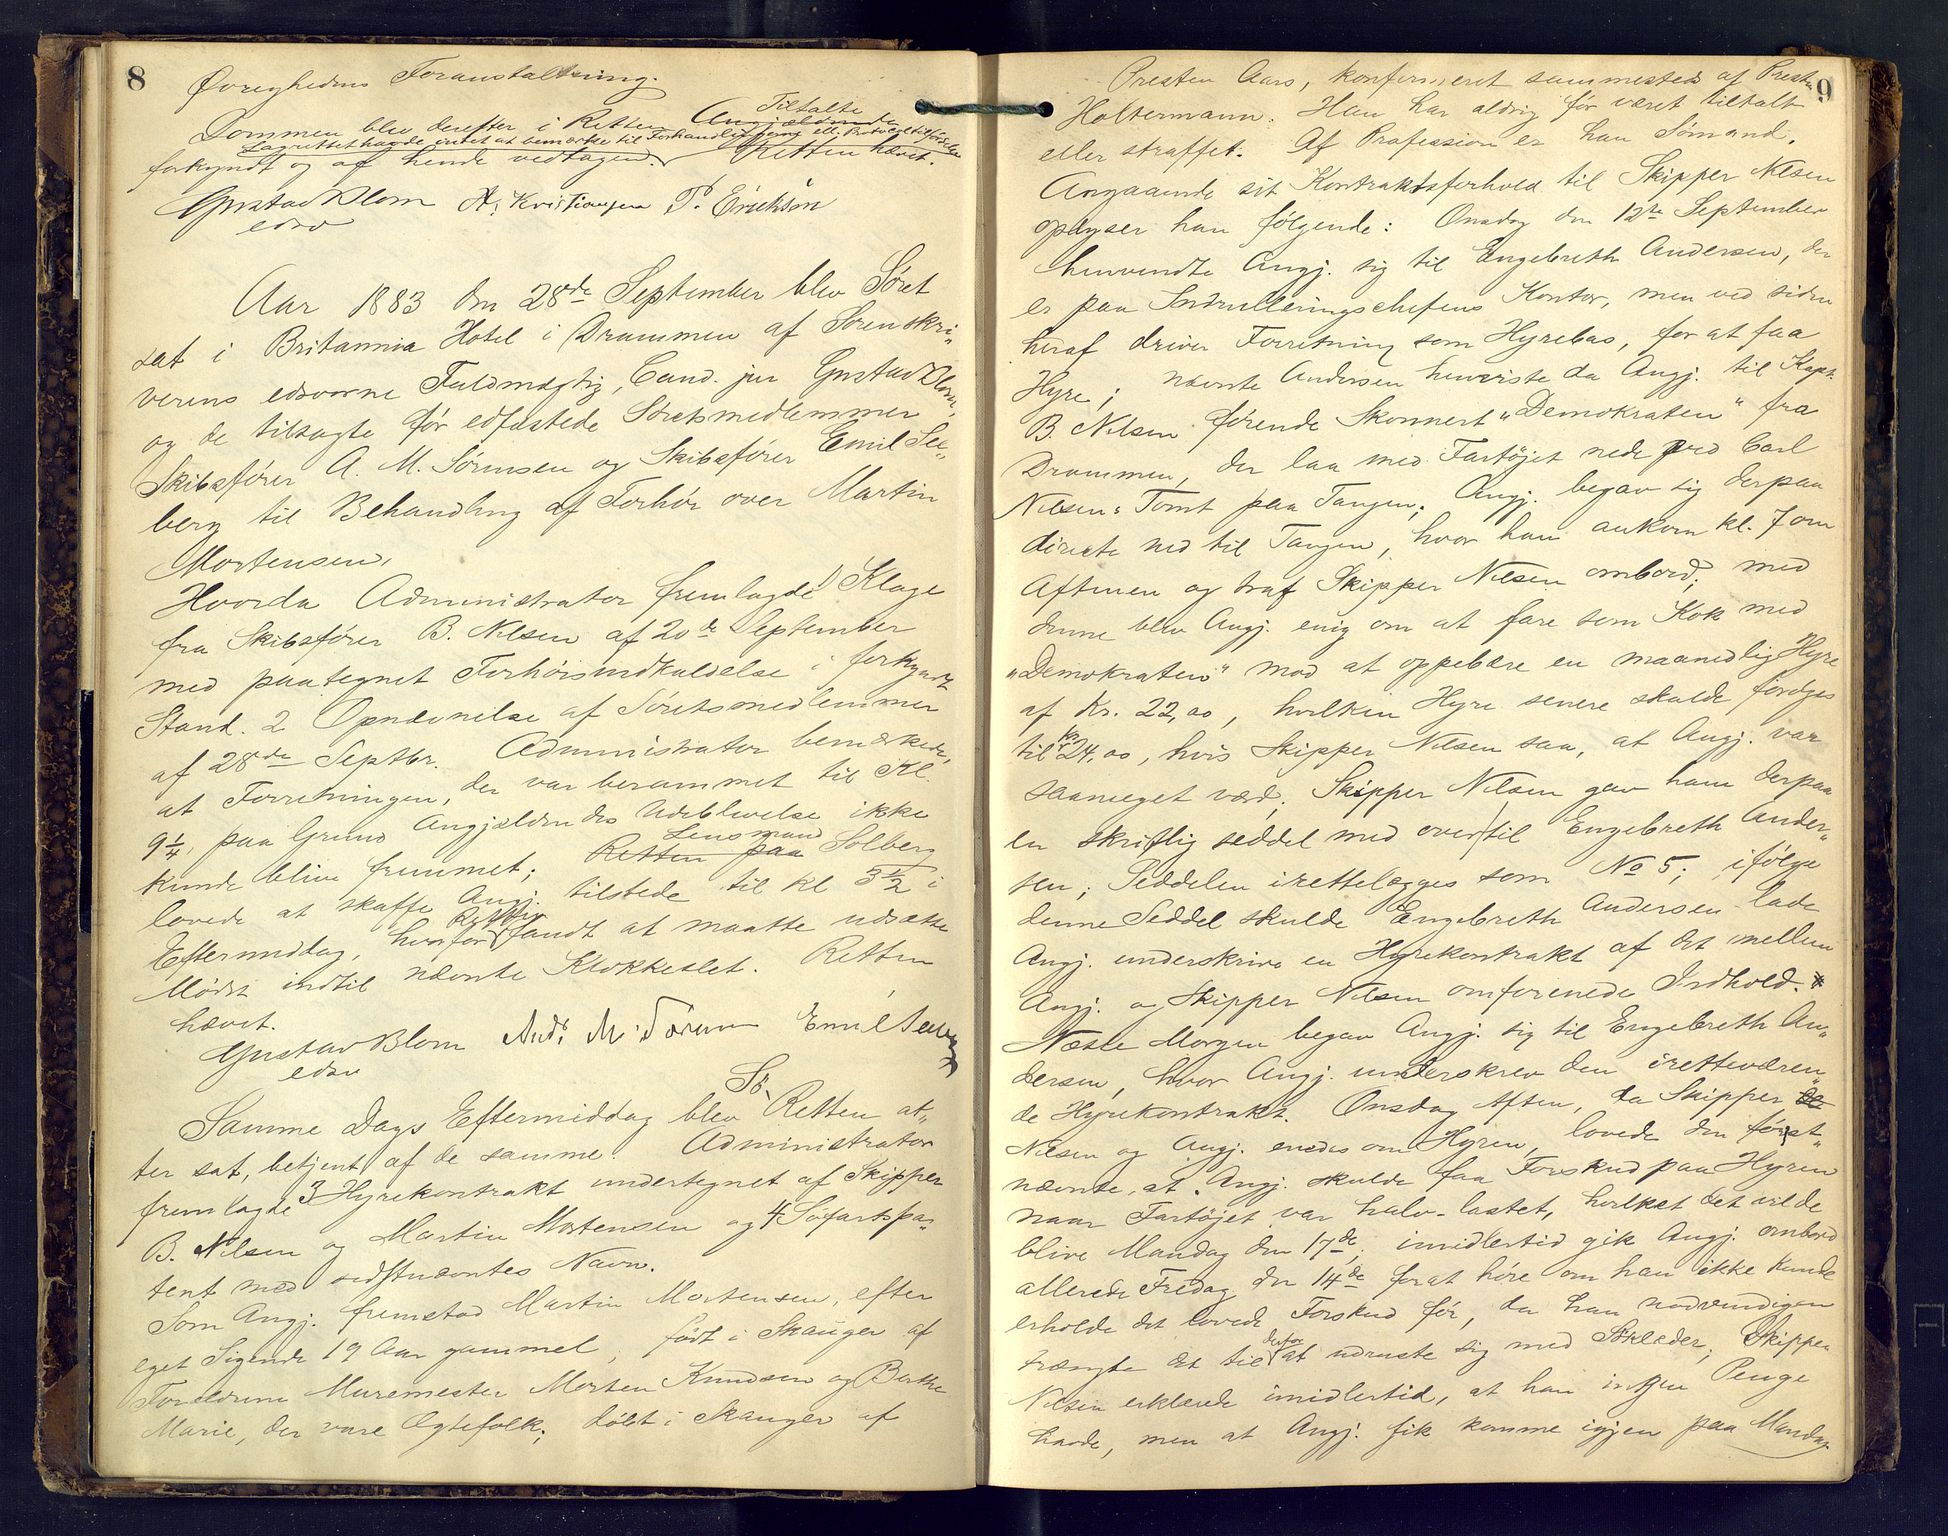 8
Øvrighedens Foranstaltning.
Tiltalte
Dommen blev derefter i Retten Angjældende
Lagrettet havde intet at bemærke til Forhandlingerne ell. Protocoltilførslen
forkyndt og af hende vedtagen. Retten hævet.
Gustav Blom A. Kristiansen P. Erikson
edsv
Aar 1883 den 28de September blev Søret
sat i Britannia Hotel i Drammen af Sorenskri-
verens edsvorne Fuldmægtig, Cand. jur Gustav Blom,
og de tilsagte før edfæstede Søretsmedlemmer
Skibsfører A. M. Sørensen og Skibsfører Emil See-
berg til Behandling af Forhør over Martin
Mortensen.
Hvorda Administrator fremlagde 1) Klage
fra Skibsfører B. Nilsen af 20de September
med paategnet Forhørsindkaldelse i forkyndt
Stand. 2 Opnævnelse af Søretsmedlemmer
af 28de Septbr. Administrator bemærkede,
at Forretningen, der var berammet til Kl.
9¼, paa Grund Angjældendes Udeblivelse ikke
Lensmand
kunde blive fremmet; Retten paa Solberg
lovede at skaffe Angj. tilstede til kl 3½ i
Retten
Eftermiddag, hvorfor fandt at maatte udsætte
Mødet indtil nævnte Klokkeslet. Retten
hævet.
Gustav Blom And. M. Sørensen Emil Seeberg
edsv
Sø-
Samme Dags Eftermiddag blev Retten at-
ter sat, betjent af de samme. Administrator
fremlagde 3 Hyrekontrakt undertegnet af Skipper
B. Nilsen og Martin Mortensen og 4 Søfartspa-
tent med sidstnævntes Navn.
Som Angj. fremstod Martin Mortensen, efter
eget Sigende 19 Aar gammel, født i Skauger af
Forældrene Muremester Morten Knudsen og Berthe
Marie, der vare Ægtefolk; døbt i Skauger af
9
Presten Aars, konfirmeret sammesteds af Presten
Holtermann. Han har aldrig før været tiltalt
eller straffet. Af Profession er han Sømand.
Angaaende sit Kontraktsforhold til Skipper Nilsen
oplyser han følgende: Onsdag den 12te September
henvendte Angj. sig til Engebreth Andersen, der
er paa Indrulleringschefens Kontor, men ved siden
heraf driver Forretning som Hyrebas, for at faa
Hyre; nævnte Andersen henviste da Angj. til Kapt.
B. Nilsen førende Skonnert "Demokraten" fra
Drammen, der laa med Fartøjet nede ved Carl
Nilsens Tomt paa Tangen; Angj. begav sig derpaa
directe ned til Tangen, hvor han ankom kl. 7 om
Aftenen og traf Skipper Nilsen ombord; med
denne blev Angj. enig om at fare som Kok med
"Demokraten" mod at oppebære en maanedlig Hyre
af Kr. 22,00, hvilken Hyre senere skulde forøges
til kr 24,00, hvis Skipper Nilsen saa, at Angj. var
saameget værd; Skipper Nilsen gav ham derpaa
en skriftlig seddel med over til Engebreth Ander-
sen; Seddelen irettelægges som No 5; ifølge
denne Seddel skulde Engebreth Andersen lade
Angj. underskrive en Hyrekontrakt af det mellem
Angj. og Skipper Nilsen omforenede Indhold.
Næste Morgen begav Angj. sig til Engebreth An-
dersen, hvor Angj. underskrev den iretteværen-
de Hyrekontrakt. Onsdag Aften, da Skipper
Nilsen og Angj. enedes om Hyren, lovede den først-
nævnte, at Angj. skulde faa Forskud paa Hyren
naar Fartøjet var halv-lastet, hvilket det vilde
blive Mandag den 17de; imidlertid gik Angj. ombord
allerede Fredag den 14de for at høre om han ikke kunde
erholde det lovede Forskud før, da han nødvendigen
derfor
trængte det til at udruste sig med Søklæder; Skipper
Nilsen erklærede imidlertid, at han ingen Penge
havde, men at Angj. fik komme igjen paa Mandag